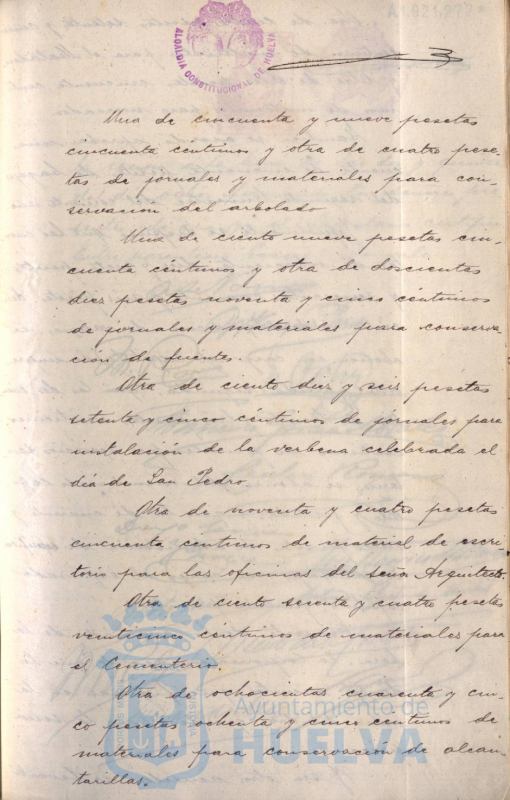 A1.921.277
ALCALDIA CONSTITUCIONAL DE HUELVA
Una de cincuenta y nueve pesetas
cincuenta céntimos y otra de cuatro pese-
tas de jornales y materiales para con-
servación del arbolado
Una de ciento nueve pesetas cin-
cuenta céntimos y otra de doscientas
diez pesetas noventa y cinco céntimos
de jornales y materiales para conserva-
ción de fuentes.
Otra de ciento diez y seis pesetas
setenta y cinco céntimos de jornales para
instalación de la verbena celebrada el
día de San Pedro.
Otra de noventa y cuatro pesetas
cincuenta centimos de material de escri-
torio para las oficinas del señor Arquitecto.
Otra de ciento sesenta y cuatro pesetas
veinticinco céntimos de materiales para
el Cementerio.
Otra de ochocientas cuarenta y cin-
co pesetas ochenta y cinco centimos de
materiales para conservación de alcan-
tarillas.
Ayuntamiento de
HUELVA